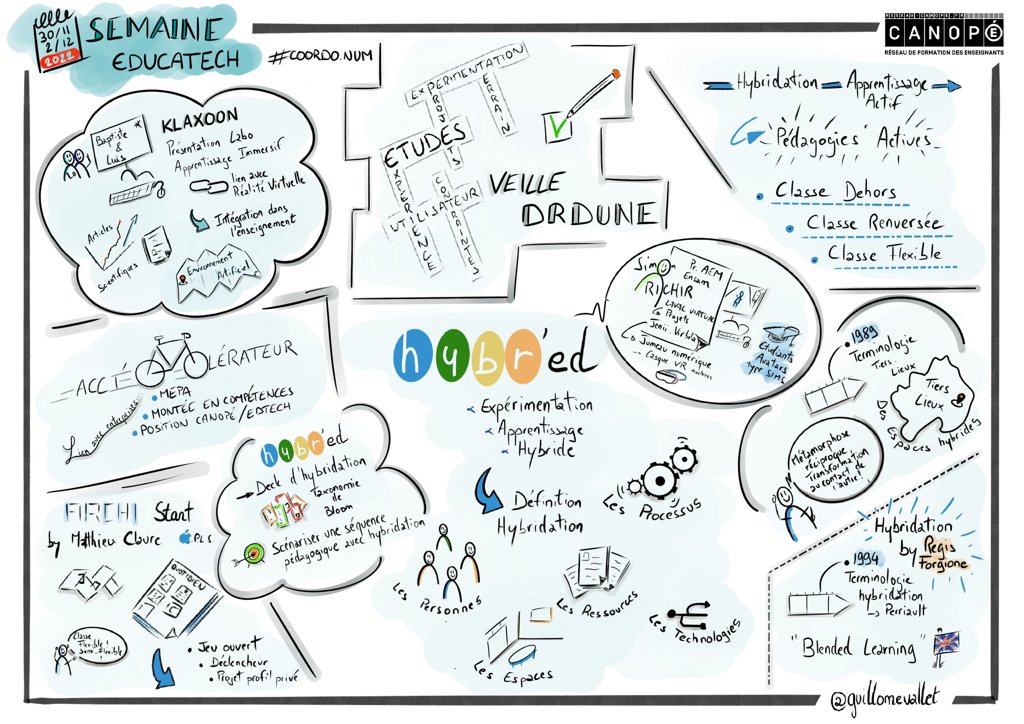 30/11
2/12
2022
SEMAINE
EDUCATECH
#COORDO.NUM
RESEAU-CANOPE.FR
CANOPÉ
RÉSEAU DE FORMATION DES ENSEIGNANTS
Baptiste
&
Luis
KLAXOON
Présentation Labo
Apprentissage Immersif
lien avec
Réalité Virtuelle
Intégration dans
l'enseignement
Articles
Scientifiques
Environnement
Artificiel
EXPÉRIMENTATION
PROJETS
TERRAIN
ETUDES
EXPÉRIENCE
UTILISATEUR
CONTRAINTES
VEILLE
DRDUNE
Hybridation = Apprentissage
Actif
Pédagogies Actives
Classe Dehors
Classe Renversée
Classe Flexible
Simon
RICHIR
Pr. AEM
Ensam
LAVAL VIRTUAL
Projets
Jumeau numérique
Casque VR
Etudiants
Avatars
type SIMS
ACCÉLÉRATEUR
Lien avec entreprises
MEPA
MONTÉE EN COMPÉTENCES
POSITION CANOPÉ/EDTECH
hybr'ed
Expérimentation
Apprentissage
Hybride
Définition
Hybridation
Les Processus
Les Personnes
Les Ressources
Les Technologies
Les Espaces
hybr'ed
Deck d'hybridation
Taxonomie
de
Bloom
Scénariser une séquence
pédagogique avec hybridation
1989
Terminologie
Tiers
Lieux
Tiers
Lieux
Espaces hybrides
Métamorphose
réciproque
Transformation
au contact de
l'autre!
FIRCHI Start
by Matthieu Cloure
QUOTIDIEN
Classe
Flexible!
Jeu ouvert
Déclencheur
Projet profil privé
Hybridation
by Régis
Forgione
1934
Terminologie
hybridation
→ Perriault
"Blended Learning"
@guillomevallet